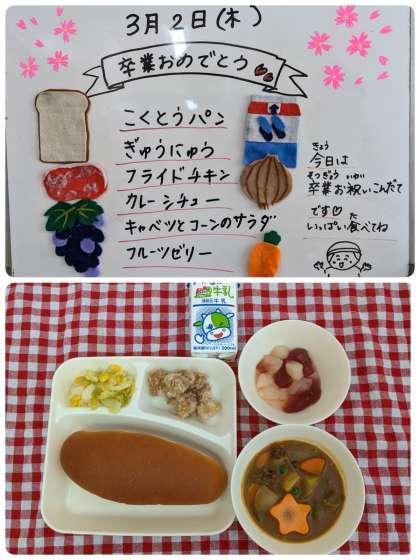 3月2日(木)
卒業おめでとう
こくとうパン
ぎゅうにゅう
フライドチキン
カレーシチュー
キャベツとコーンのサラダ
フルーツゼリー
きょう
今日は
そつぎょう いわい
卒業お祝いこんだて
です♡
た
いっぱい食べてね
牛乳